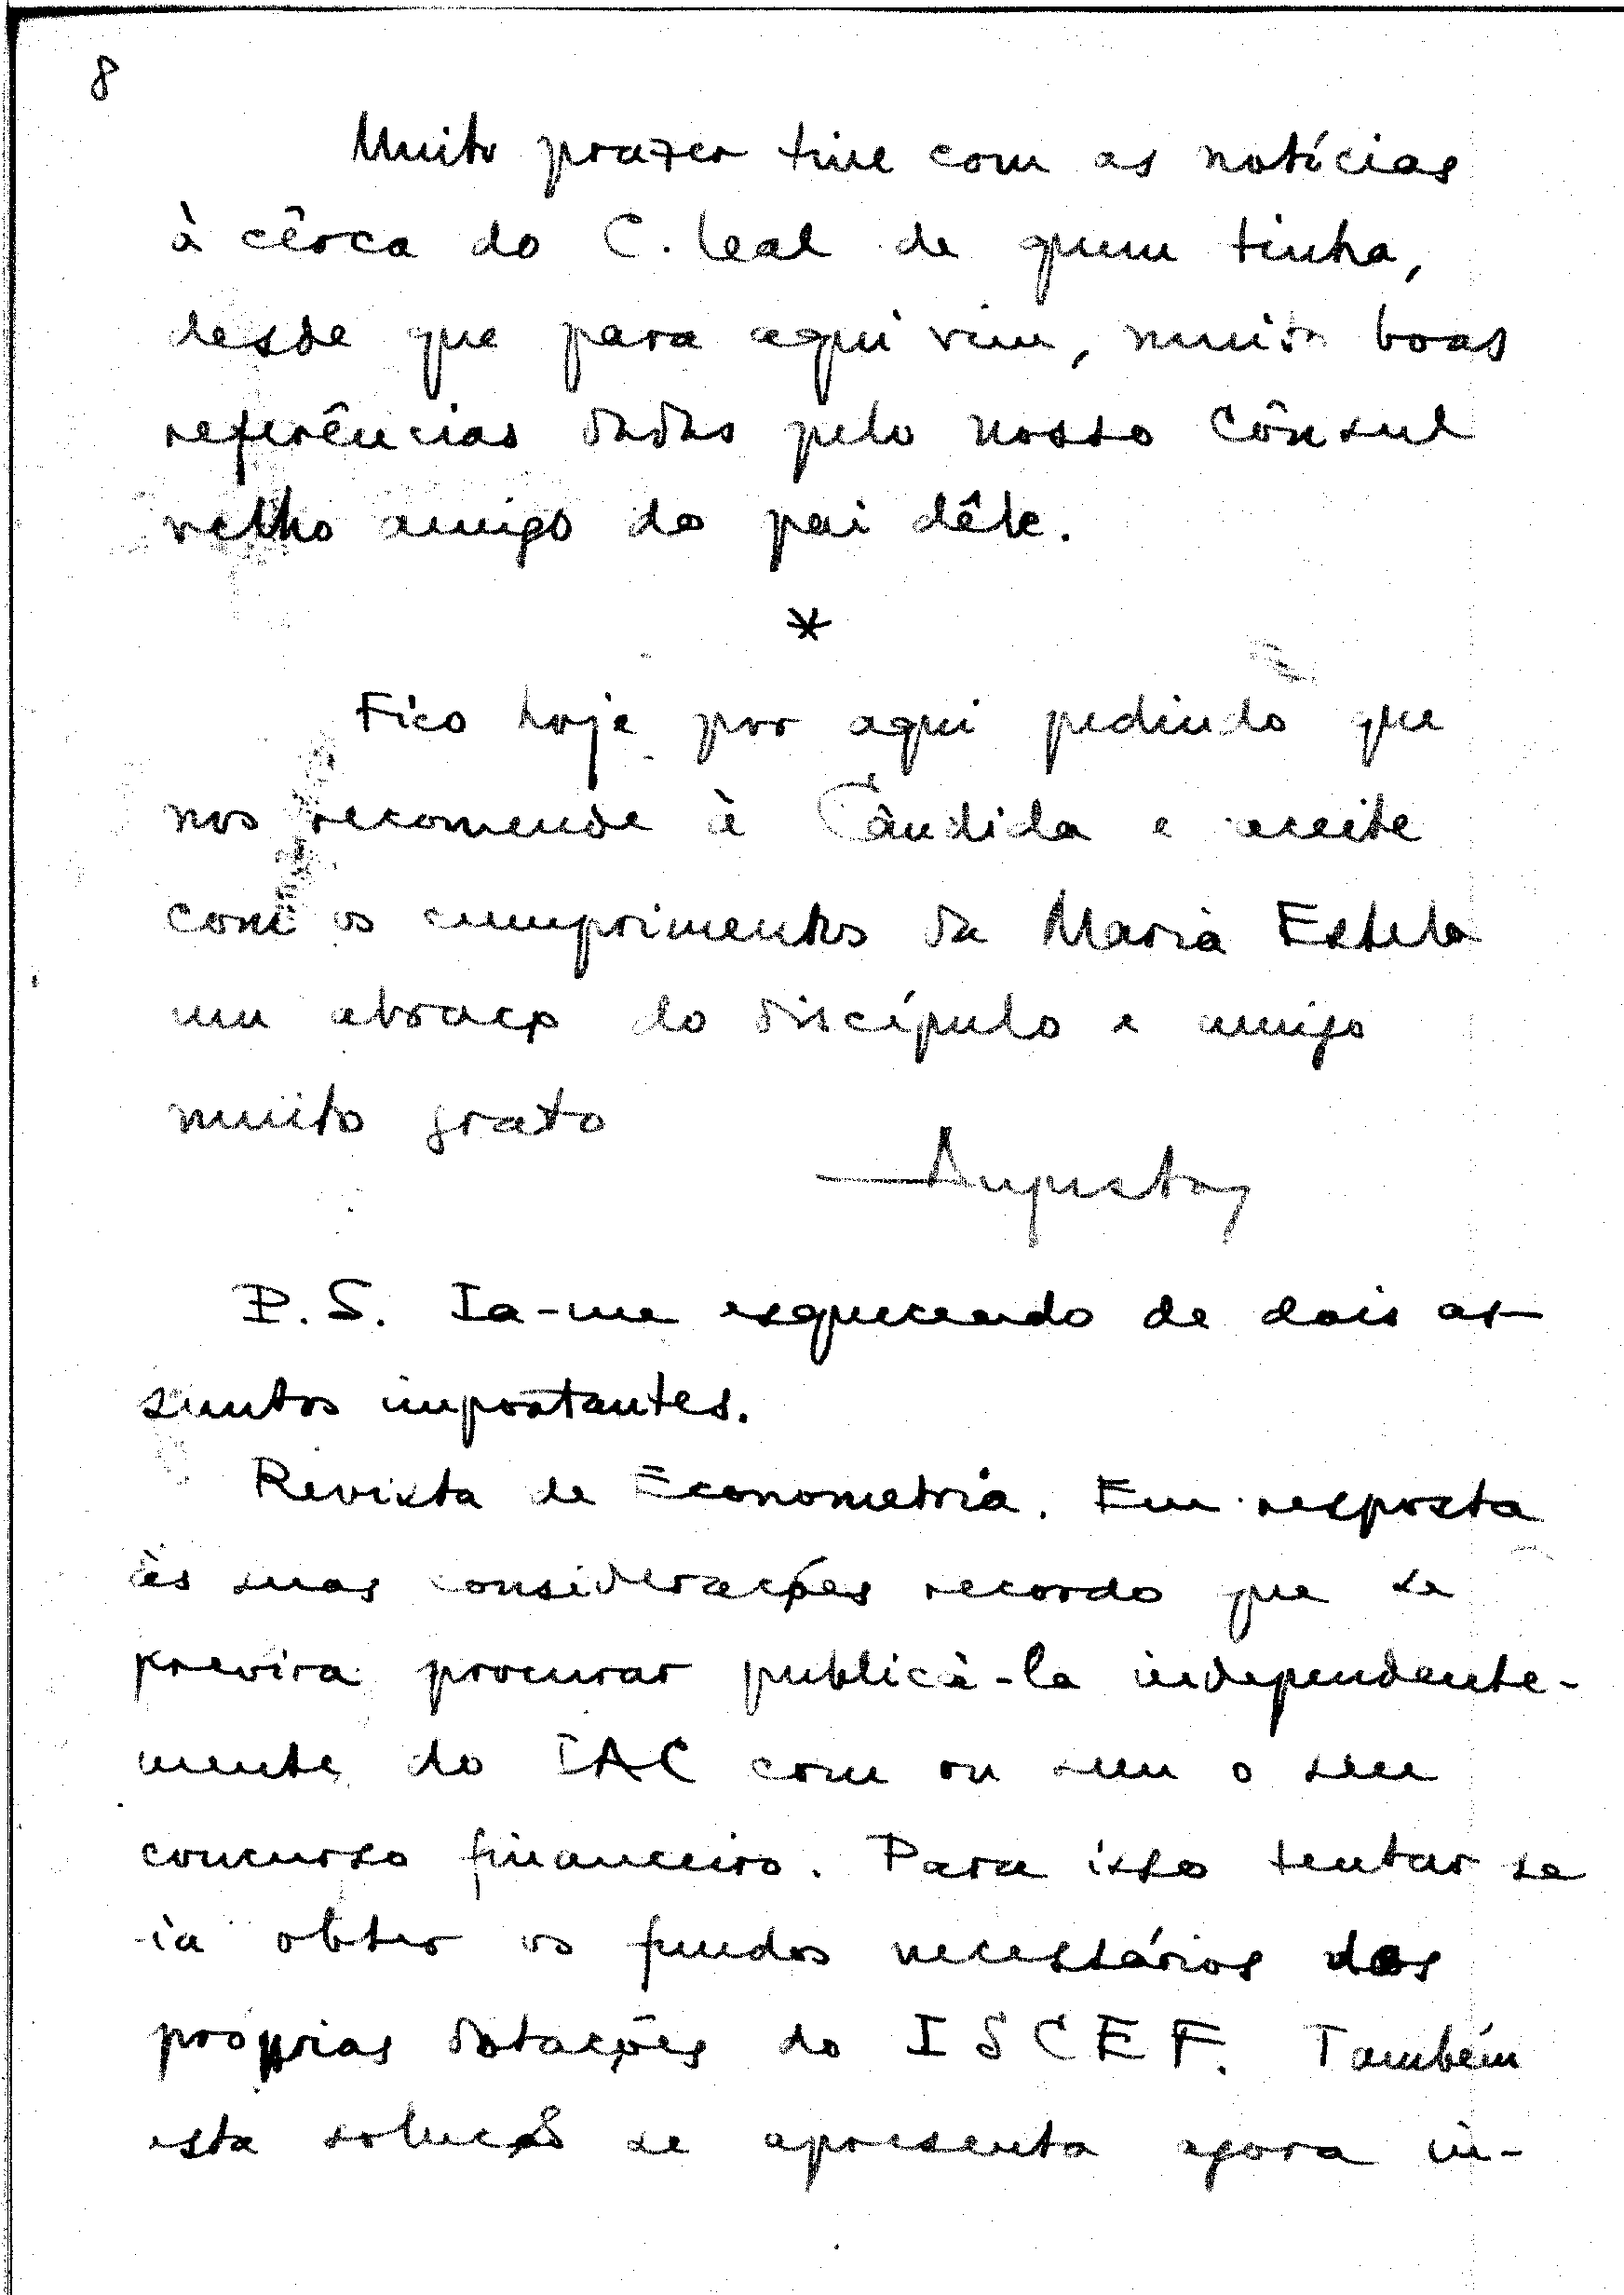 8
Muito prazer tive com as notícias
à cêrca do C. Leal de quem tinha,
desde que para aqui vim, muito boas
referências dadas pelo nosso Cônsul
velho amigo do pai dêle.
*
Fico hoje por aqui pedindo que
nos recomende à Cândida e aceite
com os cumprimentos da Maria Estela
um abraço do discípulo e amigo
muito grato
Augusto
P.S. Ia-me esquecendo de dois as-
suntos importantes.
Revista de Econometria. Em resposta
às suas considerações recordo que se
previra procurar publicá-la independente-
mente do IAC com ou sem o seu
concurso financeiro. Para isso tentar se
-ia obter os fundos necessários das
próprias dotações do ISCEF. Também
esta solução se apresenta agora in-